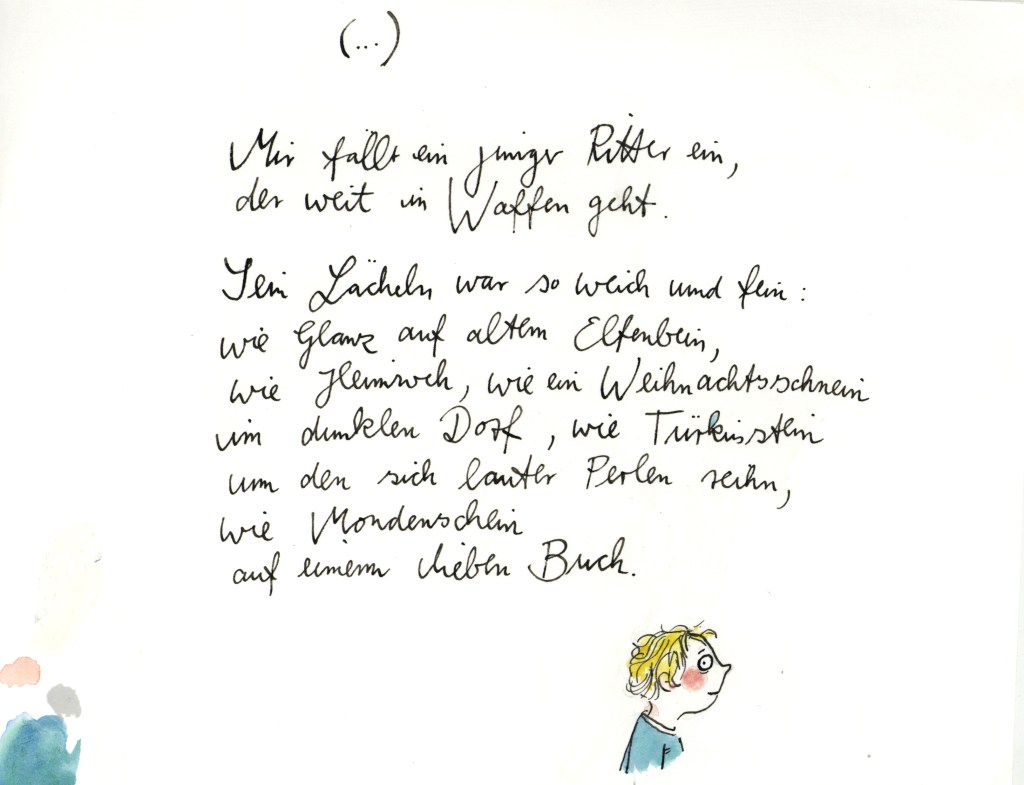 (...)
Mir fällt ein junger Ritter ein,
der weit in Waffen geht.
Sein Lächeln war so weich und fein:
wie Glanz auf altem Elfenbein,
wie Heimweh, wie ein Weihnachtsschnein
im dunklen Dorf, wie Türkisstein
um den sich lauter Perlen reihn,
wie Mondenschein
auf einem lieben Buch.